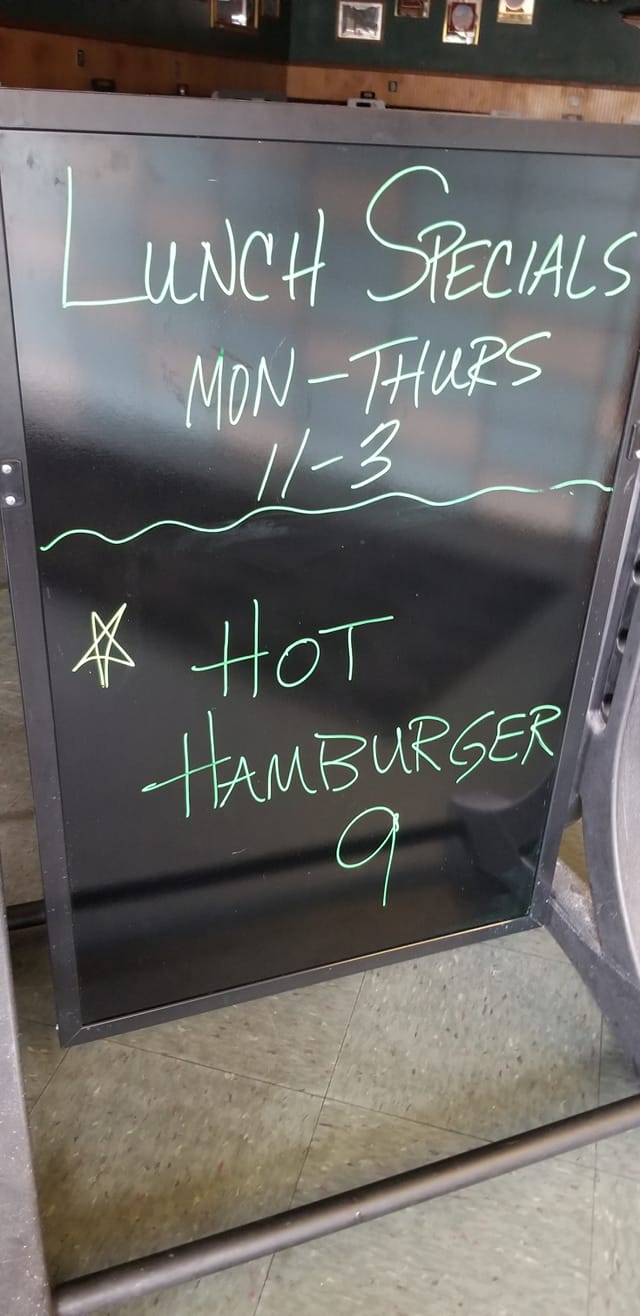 LUNCH SPECIALS
MON-THURS
11-3
HOT
HAMBURGER
9